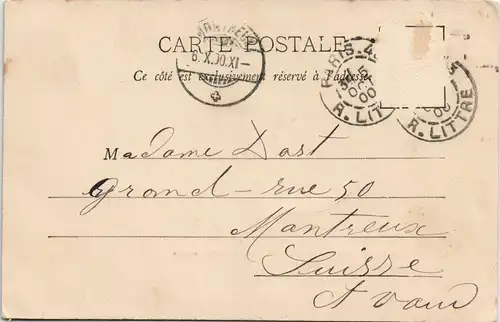 CARTE POSTALE
Ce côté est exclusivement réservé à l'adresse
MONTREUX
6.X.00.XI-
PARIS
OCT
00
R. LITTRÉ
00
R. LITTRÉ
Madame Dost
grand-rue 50
Montreux
Suisse
Ct Vaud